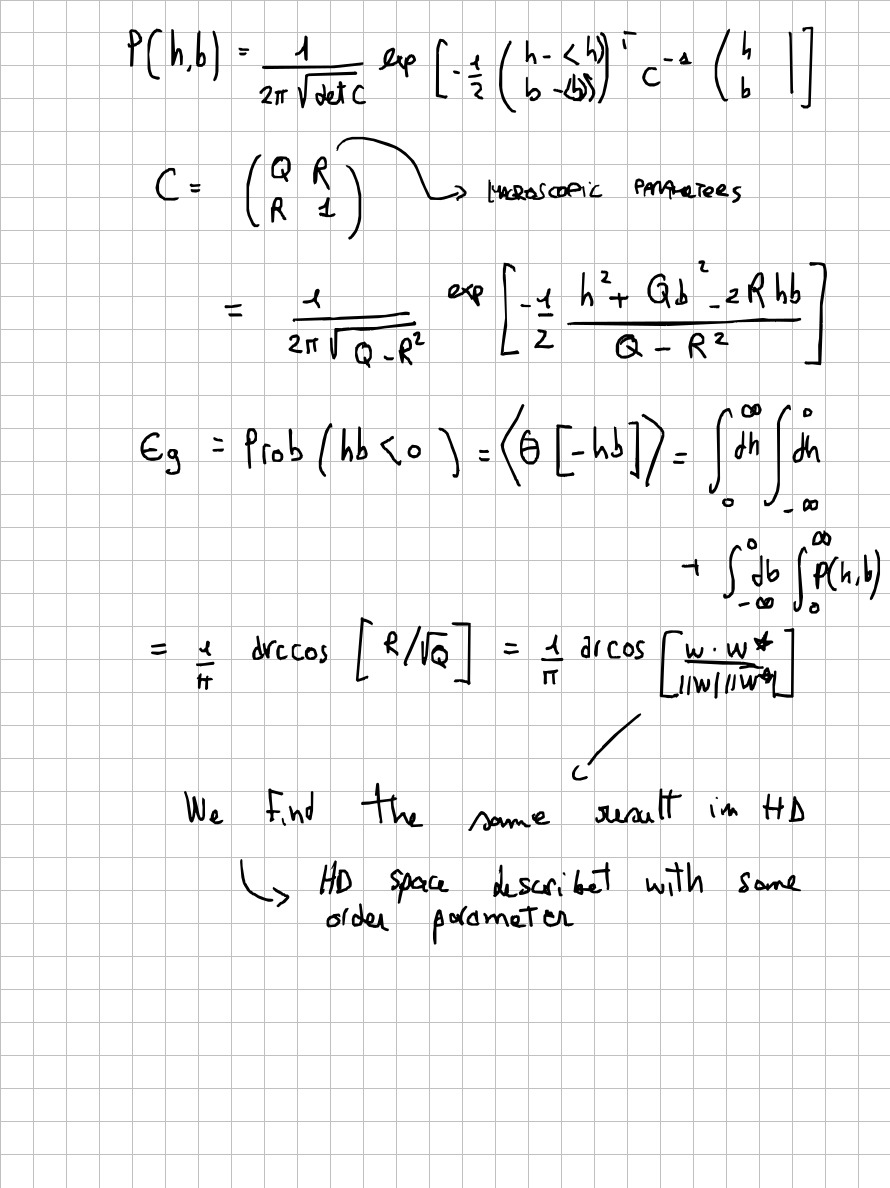 P(h,b) = 1 / 2π √det C exp [ -1/2 ( h - <h> b - <b> )^T C^-1 ( h b ) ]
C = ( Q R R 1 ) → MACROSCOPIC PARAMETERS
= 1 / 2π √Q - R² exp [ -1/2 h² + Qb² - 2Rhb / Q - R² ]
ϵg = Prob ( hb < 0 ) = <θ [-hb]> = ∫_0^∞ dh ∫_-∞^0 dh
+ ∫_-∞^0 db ∫_0^∞ P(h,b)
= 1/π arccos [ R/√Q ] = 1/π arcos [ w · w* / ||w|| ||w*|| ]
We Find the same result in HD
↳ HD space describet with some
order parameter